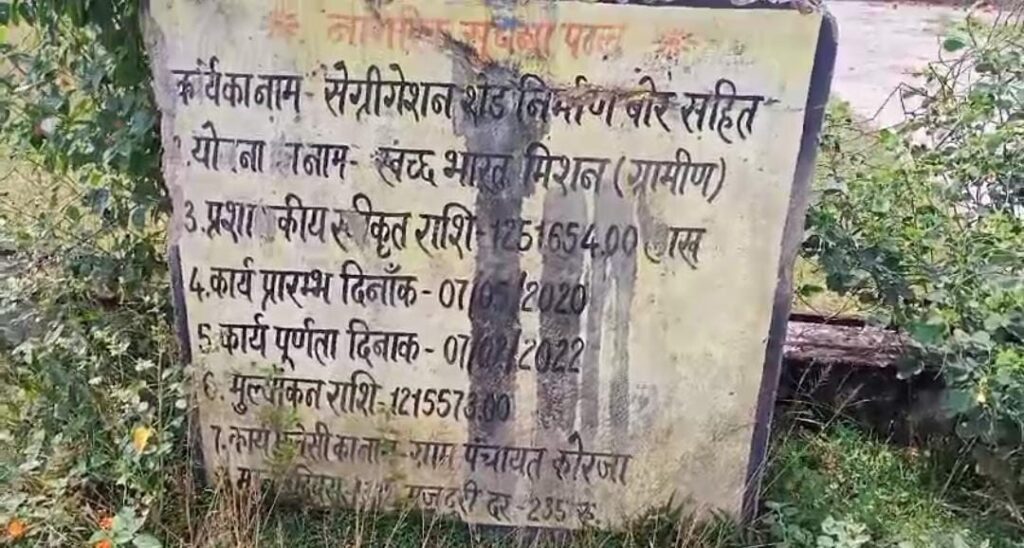 नागरिक सूचना पटल
कार्य का नाम - सेग्रीगेशन शेड निर्माण बोर सहित
योजना का नाम - स्वच्छ भारत मिशन (ग्रामीण)
3. प्रशासकीय स्वीकृत राशि - 1251654.00 लाख
4. कार्य प्रारम्भ दिनाँक - 07/05/2020
5. कार्य पूर्णता दिनाक - 07/02/2022
6. मुल्यांकन राशि - 1215573.00
7. कार्य एजेंसी का नाम - ग्राम पंचायत कोरजा
मजदूरी दर - 235 रु.